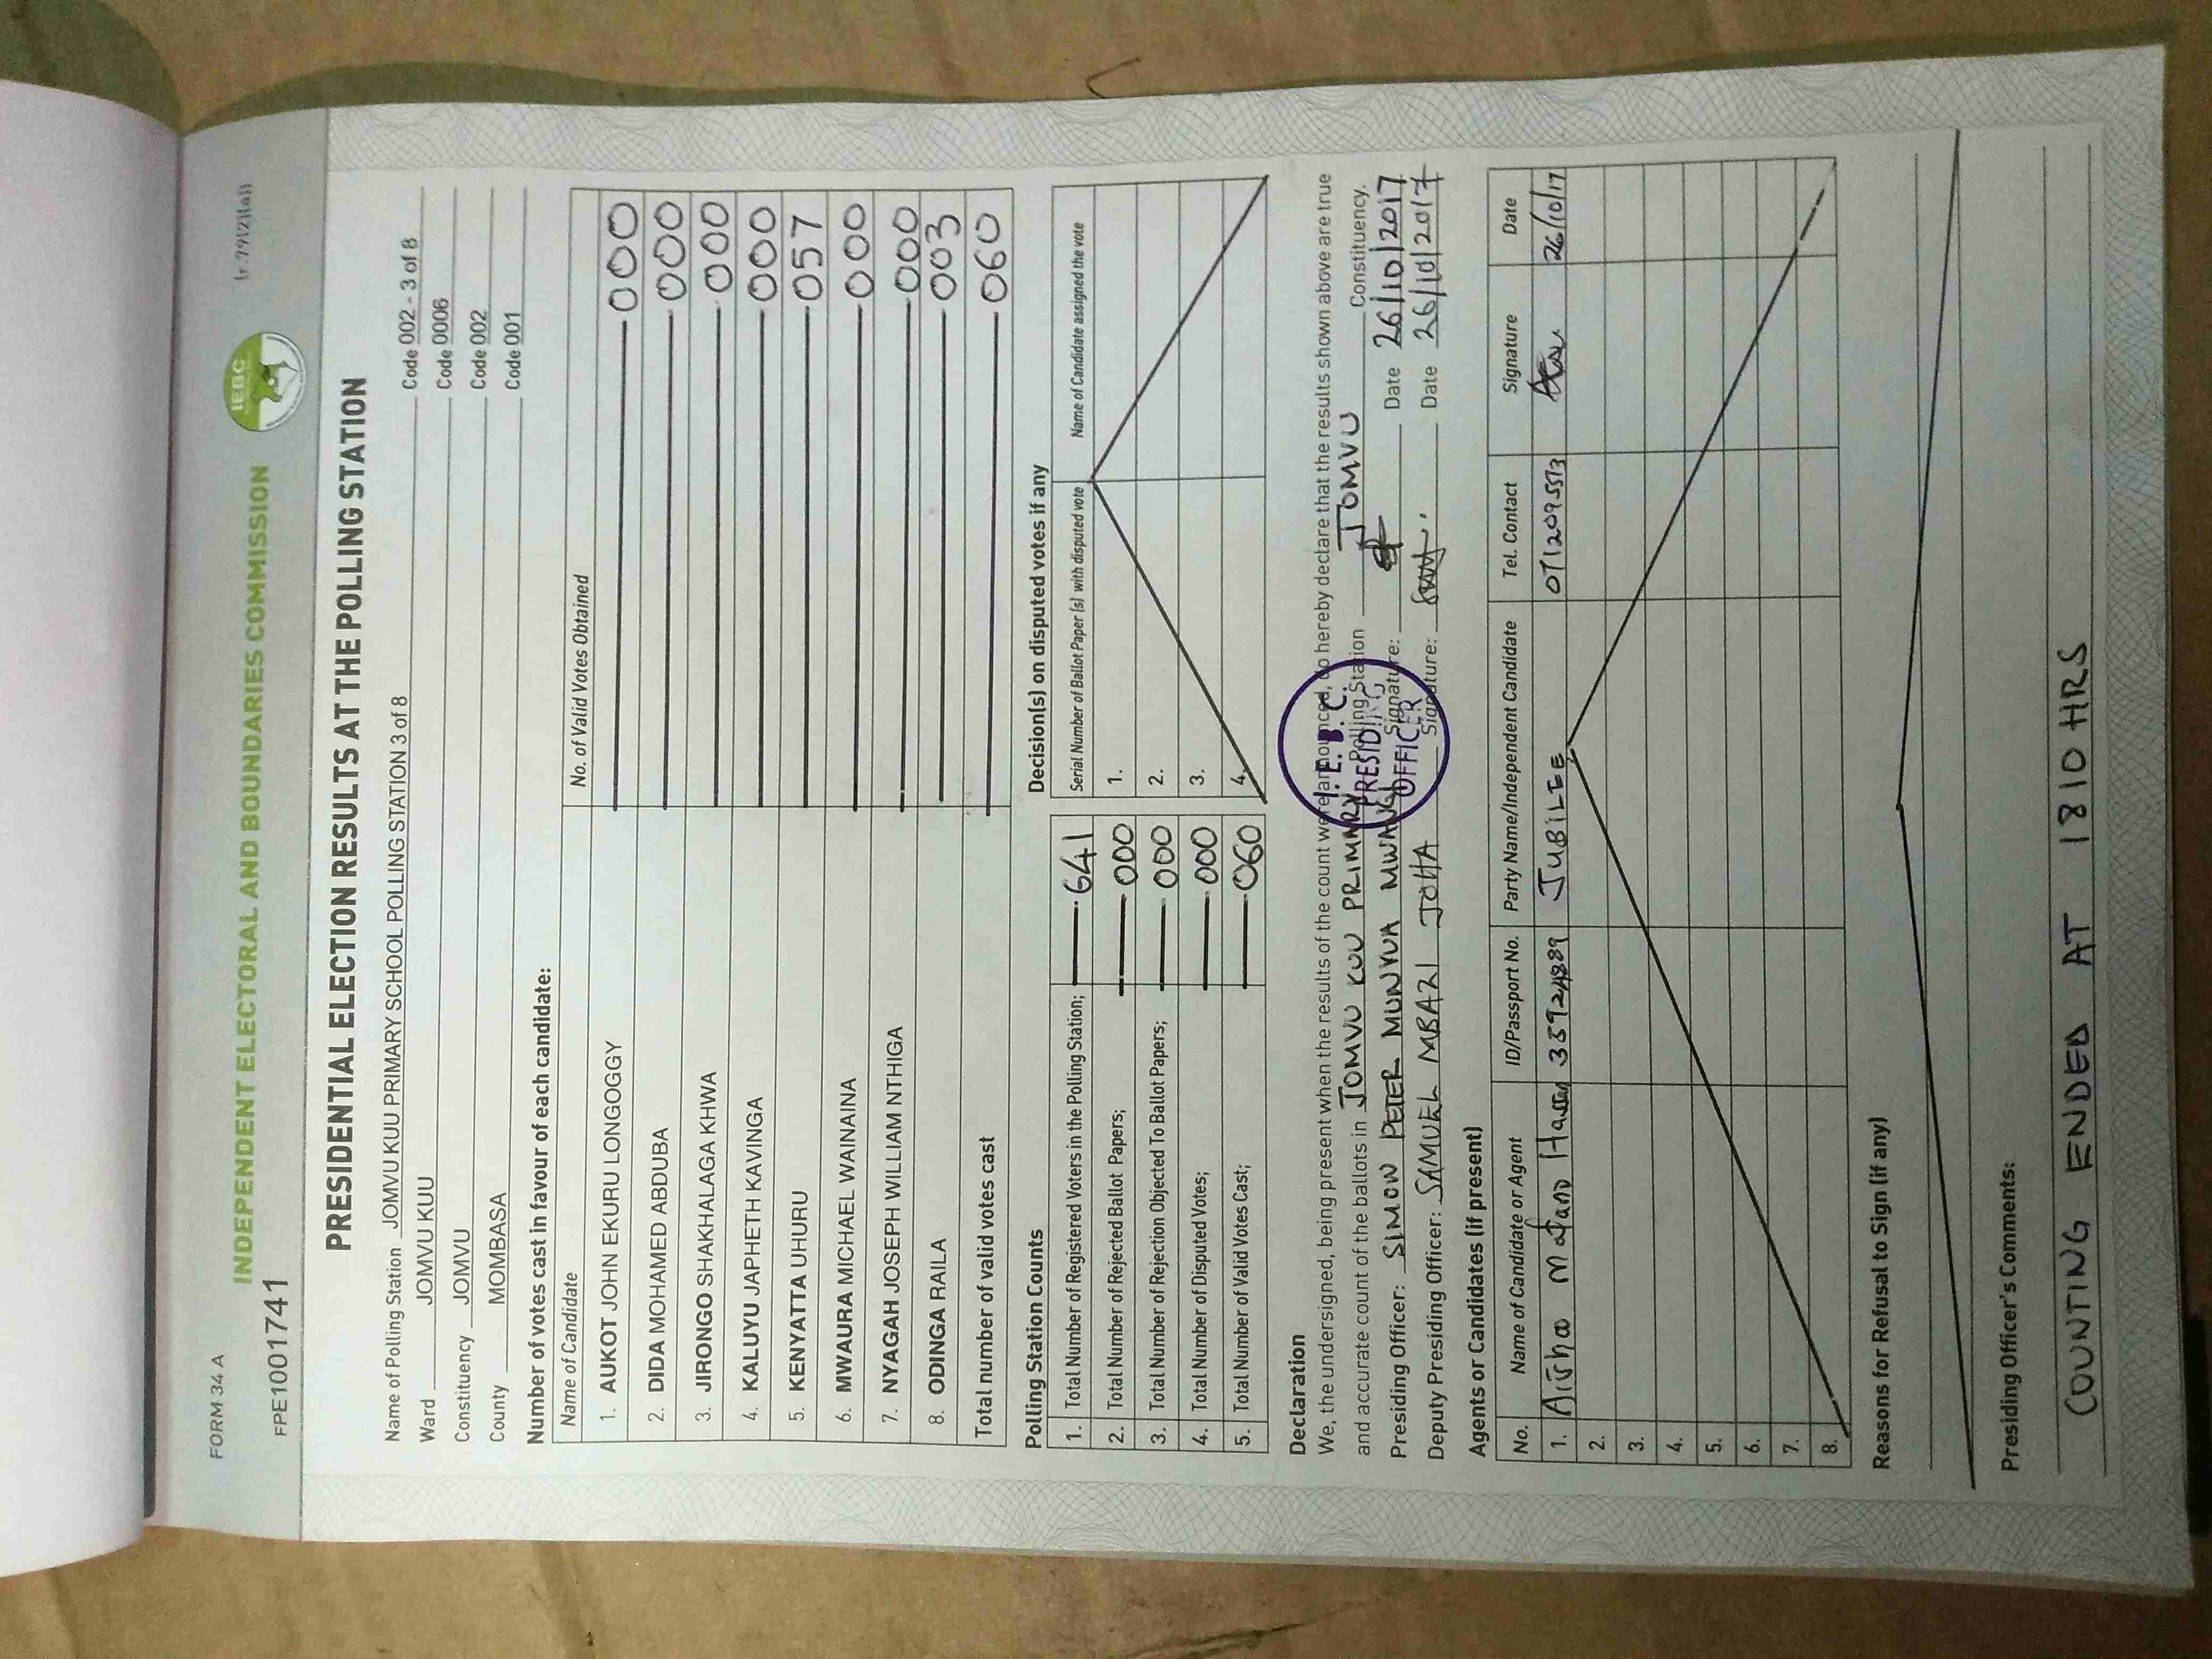 FORM 34 A
INDEPENDENT ELECTORAL AND BOUNDARIES COMMISSION
IEBC
FPE1001741
PRESIDENTIAL ELECTION RESULTS AT THE POLLING STATION
Name of Polling Station JOMVU KUU PRIMARY SCHOOL POLLING STATION 3 of 8 Code 002 - 3 of 8
Ward JOMVU KUU Code 0006
Constituency JOMVU Code 002
County MOMBASA Code 001
Number of votes cast in favour of each candidate:
Name of Candidate No. of Valid Votes Obtained
1. AUKOT JOHN EKURU LONGOGGY 000
2. DIDA MOHAMED ABDUBA 000
3. JIRONGO SHAKHALAGA KHWA 000
4. KALUYU JAPHETH KAVINGA 000
5. KENYATTA UHURU 057
6. MWAURA MICHAEL WAINAINA 000
7. NYAGAH JOSEPH WILLIAM NTHIGA 000
8. ODINGA RAILA 003
Total number of valid votes cast 060
Polling Station Counts
1. Total Number of Registered Voters in the Polling Station; 641
2. Total Number of Rejected Ballot Papers; 000
3. Total Number of Rejection Objected To Ballot Papers; 000
4. Total Number of Disputed Votes; 000
5. Total Number of Valid Votes Cast; 060
Decision(s) on disputed votes if any
Serial Number of Ballot Paper (s) with disputed vote Name of Candidate assigned the vote
1.
2.
3.
4.
Declaration
We, the undersigned, being present when the results of the count were announced, do hereby declare that the results shown above are true
and accurate count of the ballots in JOMVU KUU PRIMARY Polling Station JOMVU Constituency.
Presiding Officer: SIMON PETER MUNYUA MWANGI Signature: Date 26/10/2017
Deputy Presiding Officer: SAMUEL MBAZI JOHA Signature: Date 26/10/2017
I.E.B.C.
PRESIDING
OFFICER
Agents or Candidates (if present)
No. Name of Candidate or Agent ID/Passport No. Party Name/Independent Candidate Tel. Contact Signature Date
1. Aisha Mafano Hassan JUBILEE 0712095573 26/10/17
2.
3.
4.
5.
6.
7.
8.
Reasons for Refusal to Sign (if any)
Presiding Officer's Comments:
COUNTING ENDED AT 1810 HRS